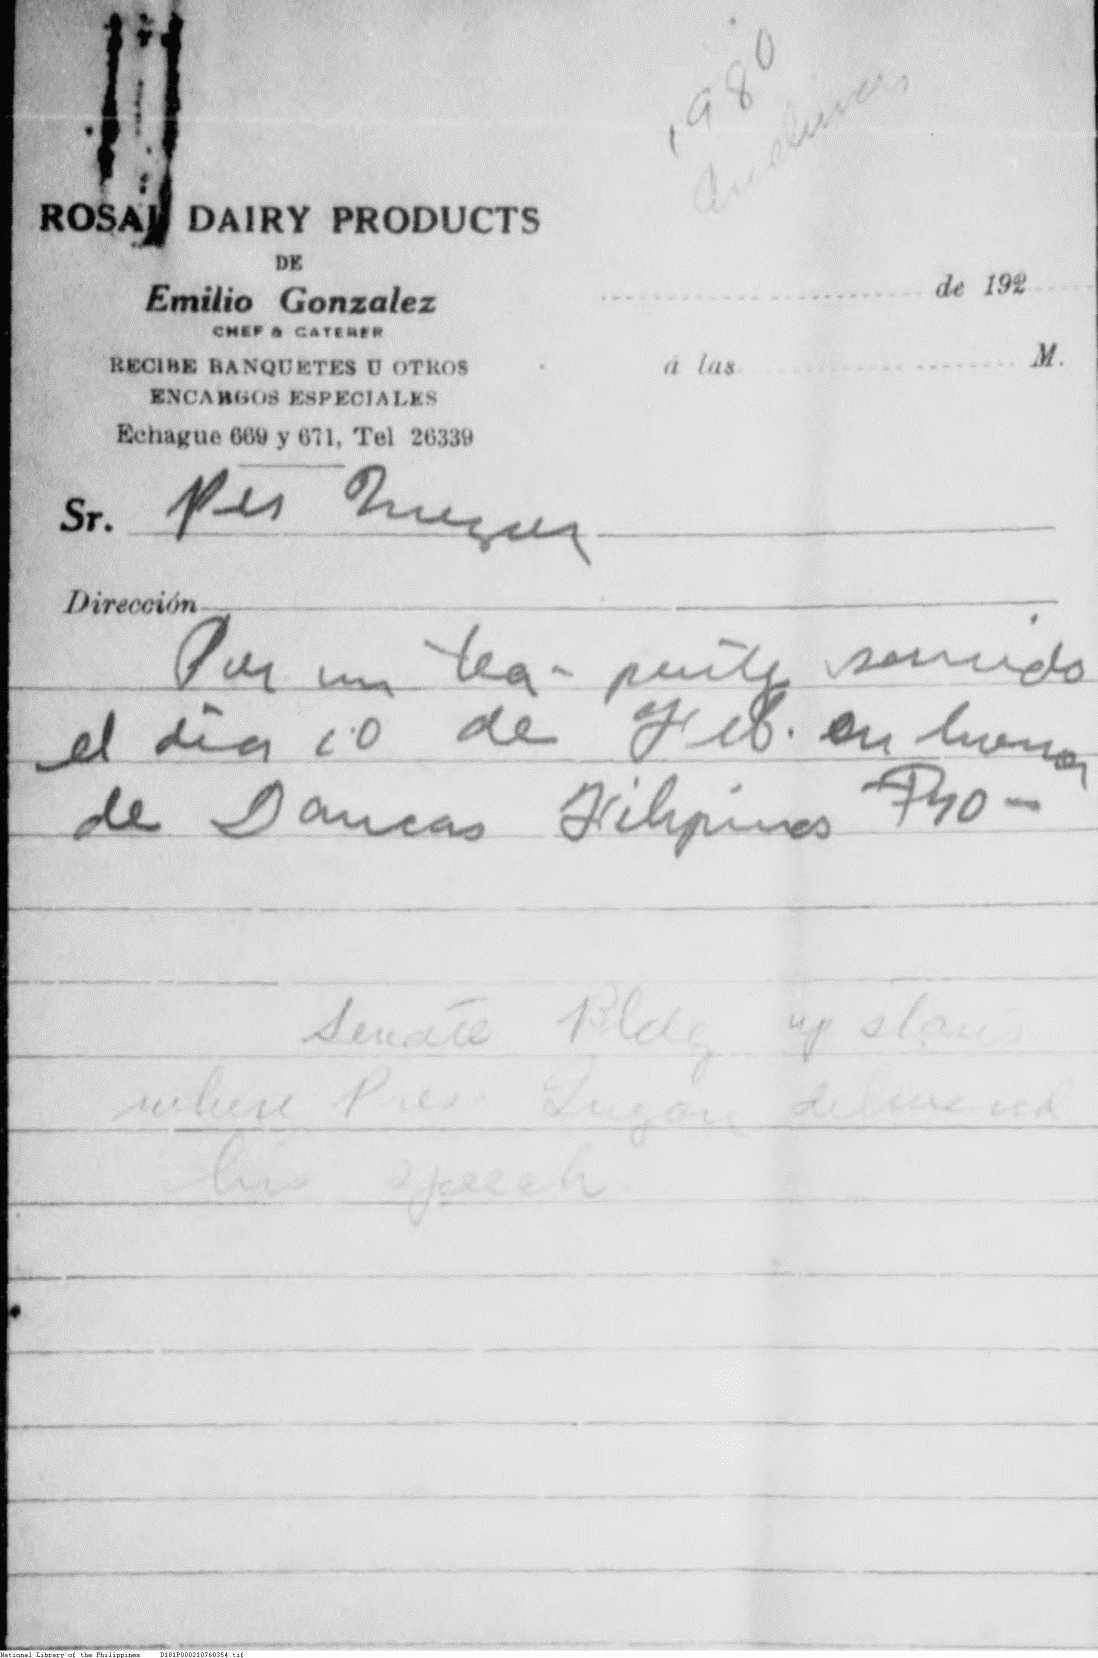 1980
ROSAL DAIRY PRODUCTS
DE
Emilio Gonzalez
CHEF & CATERER
RECIBE BANQUETES U OTROS
ENCARGOS ESPECIALES
Echague 669 y 671, Tel 26339
de 192
á las M.
Sr.
Dirección
Por un tea-party servido
el dia 10 de Feb. en honor
de Dancas Filipinas ₱40-
Senate Bldg up stairs
where Pres. Quezon delivered
his speech.
National Library of the Philippines D181P000210760354.tif